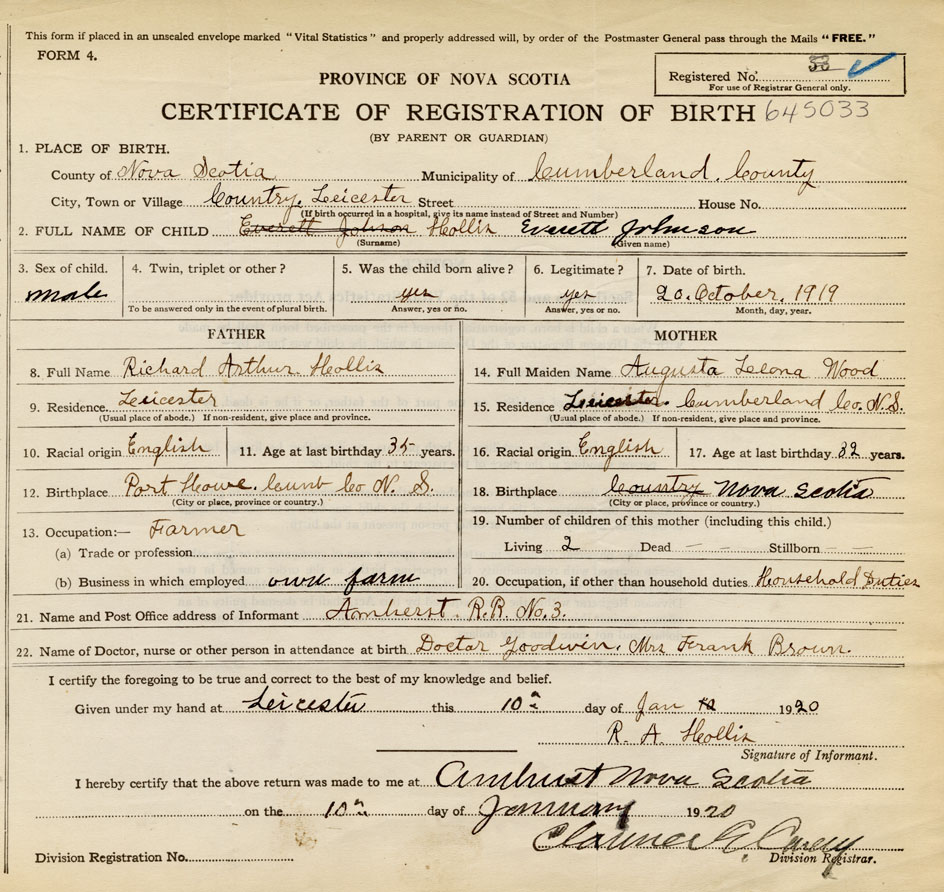 This form if placed in an unsealed envelope marked "Vital Statistics" and properly addressed will, by order of the Postmaster General pass through the Mails "FREE."
FORM 4.
Registered No.
For use of Registrar General only.
PROVINCE OF NOVA SCOTIA
CERTIFICATE OF REGISTRATION OF BIRTH 645033
(BY PARENT OR GUARDIAN)
1. PLACE OF BIRTH.
County of Nova Scotia Municipality of Cumberland. County
City, Town or Village Country. Leicester Street House No.
(If birth occurred in a hospital, give its name instead of Street and Number)
2. FULL NAME OF CHILD Everett Johnson Hollis Everett Johnson
(Surname) (Given name)
3. Sex of child. 4. Twin, triplet or other? 5. Was the child born alive? 6. Legitimate? 7. Date of birth.
male yes yes 20. October. 1919
To be answered only in the event of plural birth. Answer, yes or no. Answer, yes or no. Month, day, year.
FATHER MOTHER
8. Full Name Richard Arthur Hollis 14. Full Maiden Name Augusta Leona Wood
9. Residence. Leicester 15. Residence Leicester. Cumberland Co. N.S.
(Usual place of abode.) If non-resident, give place and province. (Usual place of abode.) If non-resident, give place and province.
10. Racial origin English 11. Age at last birthday 35 years. 16. Racial origin English 17. Age at last birthday 32 years.
12. Birthplace Port Howe. Cumb Co N. S. 18. Birthplace Country Nova Scotia
(City or place, province or country.) (City or place, province or country.)
13. Occupation:— Farmer 19. Number of children of this mother (including this child.)
(a) Trade or profession Living 2 Dead — — Stillborn — —
(b) Business in which employed own farm 20. Occupation, if other than household duties Household Duties
21. Name and Post Office address of Informant Amherst. R.R. No. 3.
22. Name of Doctor, nurse or other person in attendance at birth Doctar Goodwin. Mrs Frank Brown.
I certify the foregoing to be true and correct to the best of my knowledge and belief.
Given under my hand at Leicester this 10th day of Jan 1920
R. A. Hollis
Signature of Informant.
I hereby certify that the above return was made to me at Amherst Nova Scotia
on the 10th day of January 1920
Clarence
Division Registration No. Division Registrar.